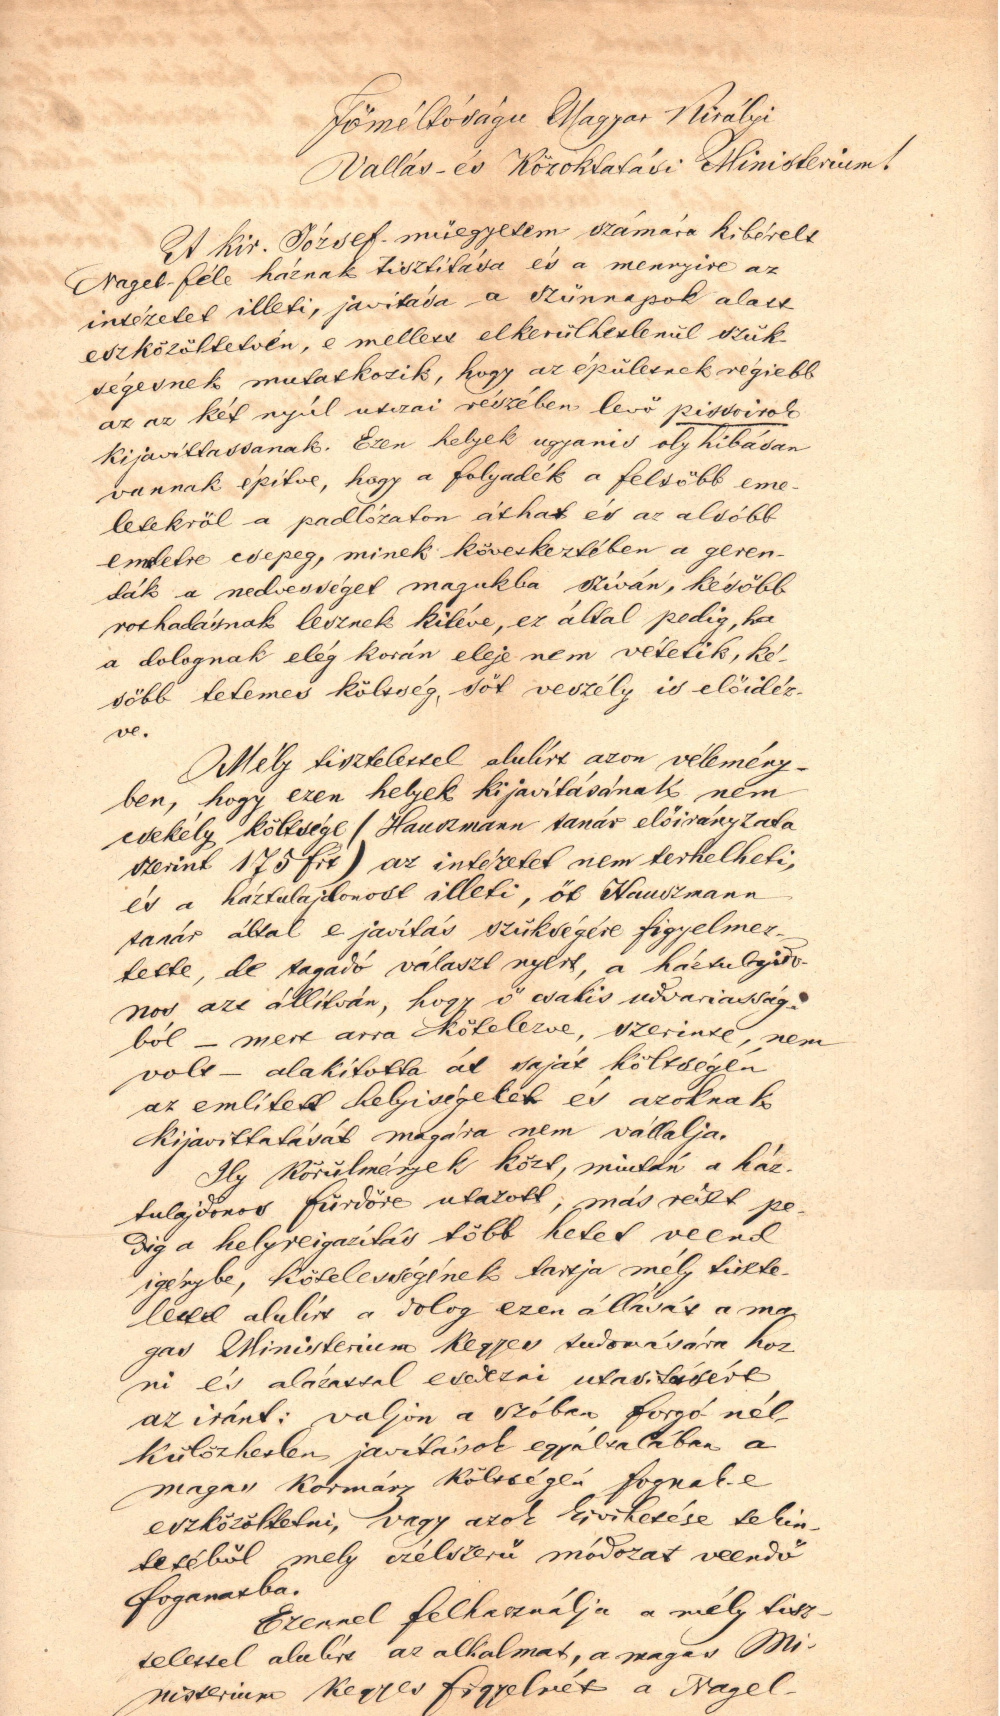 Főméltóságu Magyar Királyi
Vallás- és Közoktatási Ministerium!
A kir. József-műegyetem számára kibérelt
Nagel-féle háznak tisztitása és a mennyire az
intézetet illeti, javitása a szünnapok alatt
eszközöltetvén, e mellett elkerülhetlenül szük-
ségesnek mutatkozik, hogy az épületnek régiebb
az az két nyúl utczai részében levő pissoirok
kijavíttassanak. Ezen helyek ugyanis oly hibásan
vannak építve, hogy a folyadék a felsöbb eme-
letekröl a padlózaton áthat és az alsóbb
emeletre csepeg, minek következtében a geren-
dák a nedvességet magukba szíván, késöbb
rothadásnak lesznek kitéve, ez által pedig, ha
a dolognak elég korán eleje nem vétetik, ké-
söbb tetemes költség, söt veszély is elöidéz-
ve.
Mély tisztelettel alulírt azon vélemény-
ben, hogy ezen helyek kijavításának nem
csekély költsége (Hauszmann tanár elöirányzata
szerint 175 frt) az intézetet nem terhelheti,
és a háztulajdonost illeti, öt Hauszmann
tanár által e javítás szükségére figyelmez-
tette, de tagadó választ nyert, a háztulajdo-
nos azt állítván, hogy ö csakis udvariasság-
ból – mert arra kötelezve, szerinte, nem
volt – alakította át saját költségén
az említett helyiségeket és azoknak
kijavittatását magára nem vállalja.
Ily körülmények közt, miután a ház-
tulajdonos fürdöre utazott, más részt pe-
dig a helyreigazítás több hetet veend
igénybe, kötelességének tartja mély tiszte-
lettel alulírt a dolog ezen állását a ma
gas Ministerium kegyes tudomására hoz
ni és alázattal esedezni utasitásért
az iránt: valjon a szóban forgó nél-
külözhetlen javítások egyáltalában a
magas kormány költségén fognak-e
eszközöltetni, vagy azok kivihetése tekin-
tetéböl mely czélszerű módozat veendö
foganatba.
Ezennel felhasználja a mély tisz-
telettel alulírt az alkalmat, a magas Mi-
nisterium kegyes figyelmét a Nagel-